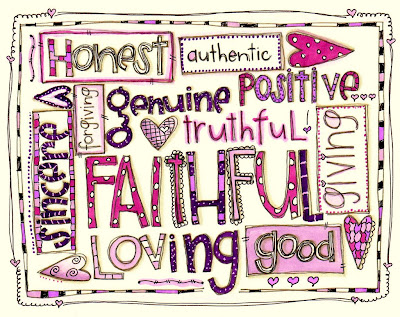 Honest
authentic
forgiving
genuine
positive
truthful
giving
sincere
FAITHFUL
LOVing
good